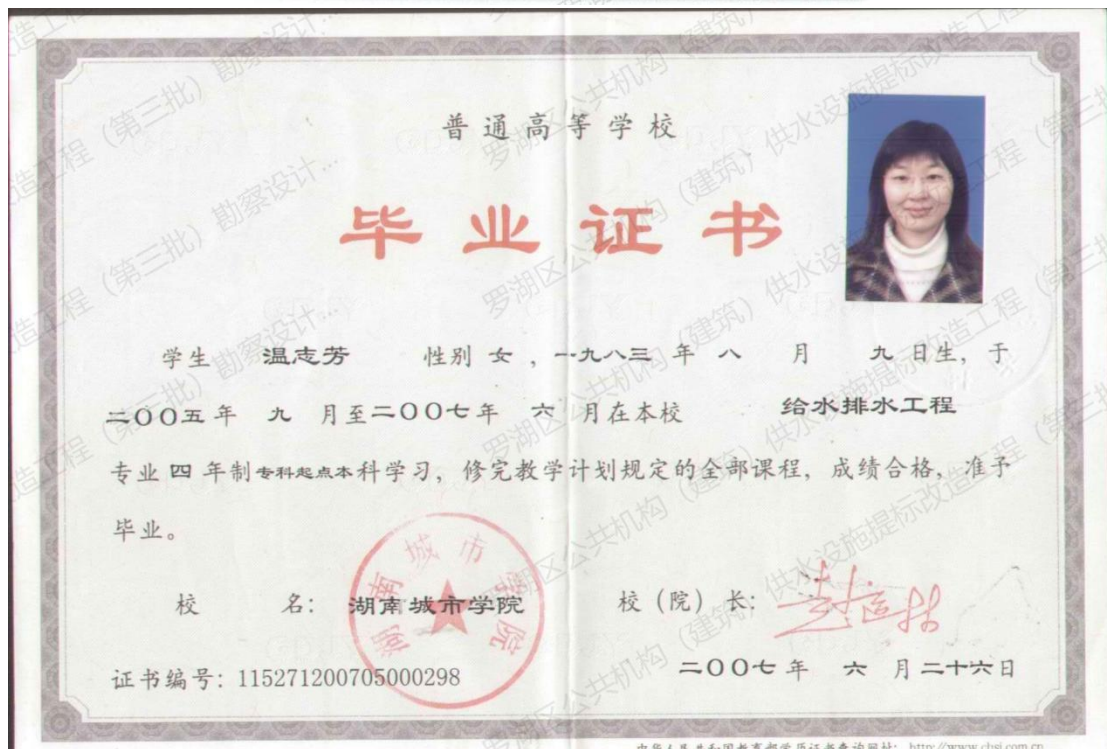 普通高等学校
毕业证书
学生 温志芳 性别 女 ，一九八三 年 八 月 九 日生，于
二〇〇五年 九 月至二〇〇七年 六 月在本校 给水排水工程
专业 四 年制 专科起点本科学习，修完教学计划规定的全部课程，成绩合格，准予
毕业。
校 名： 湖南城市学院
校（院）长：
湖南城市学院
证书编号：115271200705000298
二〇〇七年 六 月二十六日
中华人民共和国教育部学历证书查询网址： http://www.chsi.com.cn
罗湖区公共机构（建筑）供水设施提标改造工程（第三批）勘察设计...